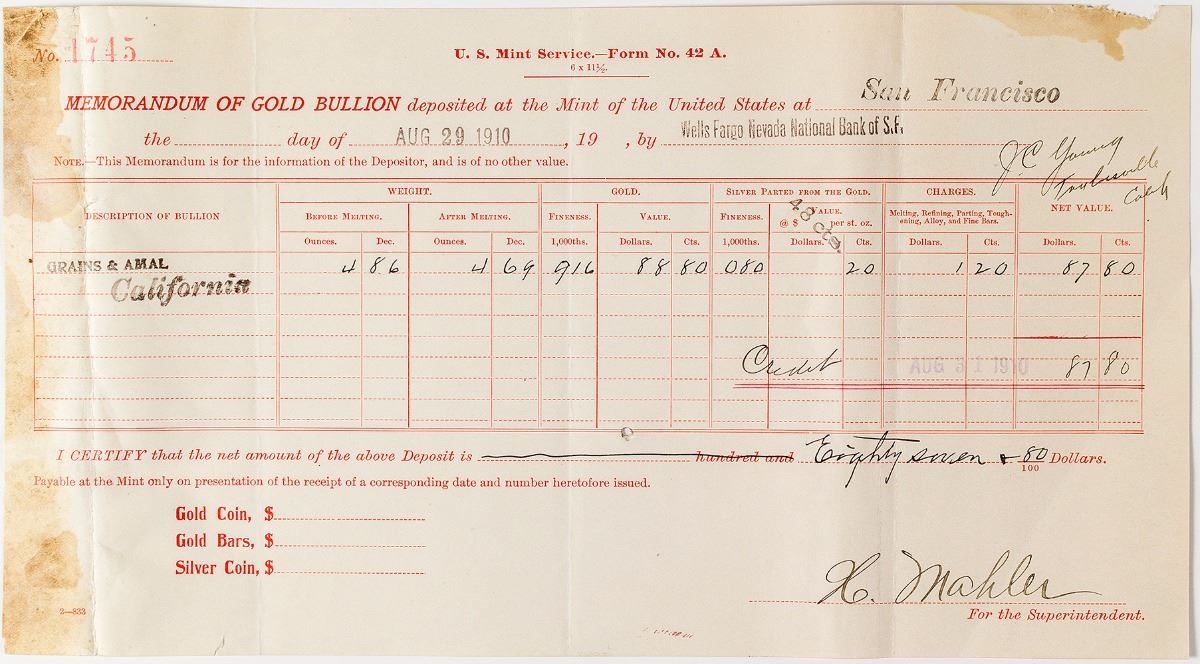 No. 1745
U. S. Mint Service.—Form No. 42 A.
6 x 11½.
MEMORANDUM OF GOLD BULLION deposited at the Mint of the United States at San Francisco
the day of AUG 29 1910, 19 , by Wells Fargo Nevada National Bank of S.F.
NOTE.—This Memorandum is for the information of the Depositor, and is of no other value.
J. C. Young
DESCRIPTION OF BULLION WEIGHT. GOLD. SILVER PARTED FROM THE GOLD. CHARGES. NET VALUE.
BEFORE MELTING. AFTER MELTING. FINENESS. VALUE. FINENESS. VALUE. @ $ 48 cts. per st. oz. Melting, Refining, Parting, Toughening, Alloy, and Fine Bars.
Ounces. Dec. Ounces. Dec. 1,000ths. Dollars. Cts. 1,000ths. Dollars. Cts. Dollars. Cts. Dollars. Cts.
GRAINS & AMAL 4 86 4 69 916 88 80 080 20 1 20 87 80
California
Credit AUG 31 1910 87 80
I CERTIFY that the net amount of the above Deposit is hundred and Eighty seven & 80/100 Dollars.
Payable at the Mint only on presentation of the receipt of a corresponding date and number heretofore issued.
Gold Coin, $
Gold Bars, $
Silver Coin, $
H. Mahler
2—833
For the Superintendent.